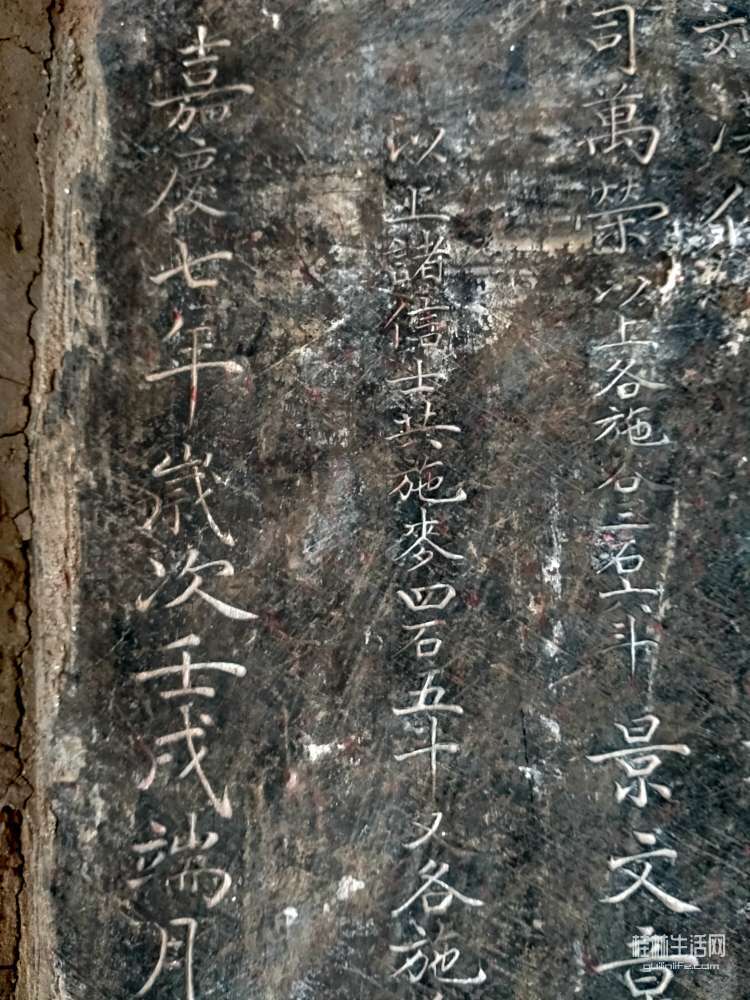 司萬荣以上各施谷三石六斗景文
以上諸信士共施麥四石五十又各施
嘉慶七年歲次壬戌端月
桂林生活网
guilinlife.com